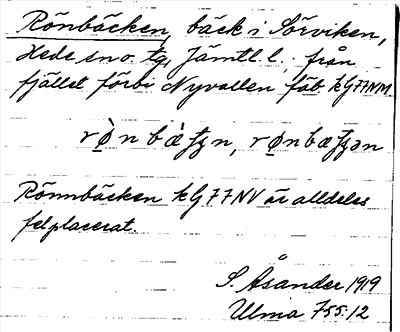 Rönbäcken, bäck i Sörviken,
Hede sn o. tg, Jämtl. l. från
fjället förbi Nyvallen fäb. kG77NM
Rönnbäcken kG77NV är alldeles
felplacerat.
S. Åsander 1919
Ulma 755:12